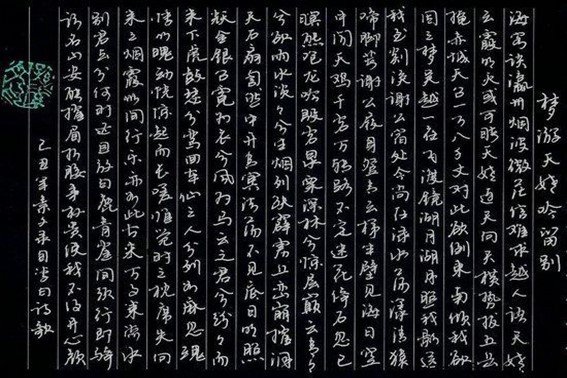 梦游天姥吟留别
海客谈瀛洲烟波微茫信难求越人语天姥
云霞明灭或可睹天姥连天向天横势拔五岳
掩赤城天台一万八千丈对此欲倒东南倾我欲
因之梦吴越一夜飞渡镜湖月湖月照我影送
我至剡溪谢公宿处今尚在渌水荡漾清猿
啼脚著谢公屐身登青云梯半壁见海日空
中闻天鸡千岩万转路不定迷花倚石忽已
暝熊咆龙吟殷岩泉栗深林兮惊层巅云青青
兮欲雨水澹澹兮生烟列缺霹雳丘峦崩摧洞
天石扇訇然中开青冥浩荡不见底日月照
耀金银台霓为衣兮风为马云之君兮纷纷而
来下虎鼓瑟兮鸾回车仙之人兮列如麻忽魂
悸以魄动恍惊起而长嗟惟觉时之枕席失向
来之烟霞世间行乐亦如此古来万事东流水
别君去兮何时还且放白鹿青崖间须行即骑
访名山安能摧眉折腰事权贵使我不得开心颜
己丑年录自李白诗歌